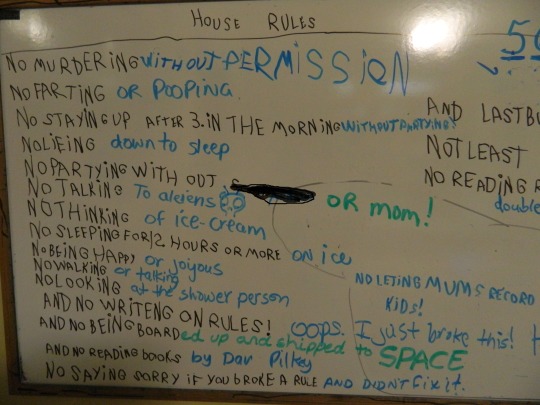 HOUSE RULES
50
NO MURDERING WITHOUT PERMISSION
NO FARTING OR POOPING.
NO STAYING UP AFTER 3. IN THE MORNING WITHOUT PARTYING!
NO LIEING down to sleep
NO PARTYING WITH OUT OR mom!
NO TALKING To aleiens
NO THINKING of ice-cream
NO SLEEPING FOR 12 HOURS OR MORE ON ice
NO BEING HAPPY or joyous
NO WALKING or talking
NO LOOKING at the shower person
AND NO WRITENG ON RULES! OOPS. I just broke this!
AND NO BEING BOARDed up and shipped to SPACE
AND NO READING BOOKS by Dav Pilkey
NO SAYING SORRY IF YOU BROKE A RULE AND DIDN'T fix it.
AND LAST BU
NOT LEAST
NO READING
double
NO LETING MUMS RECORD
KIDS!